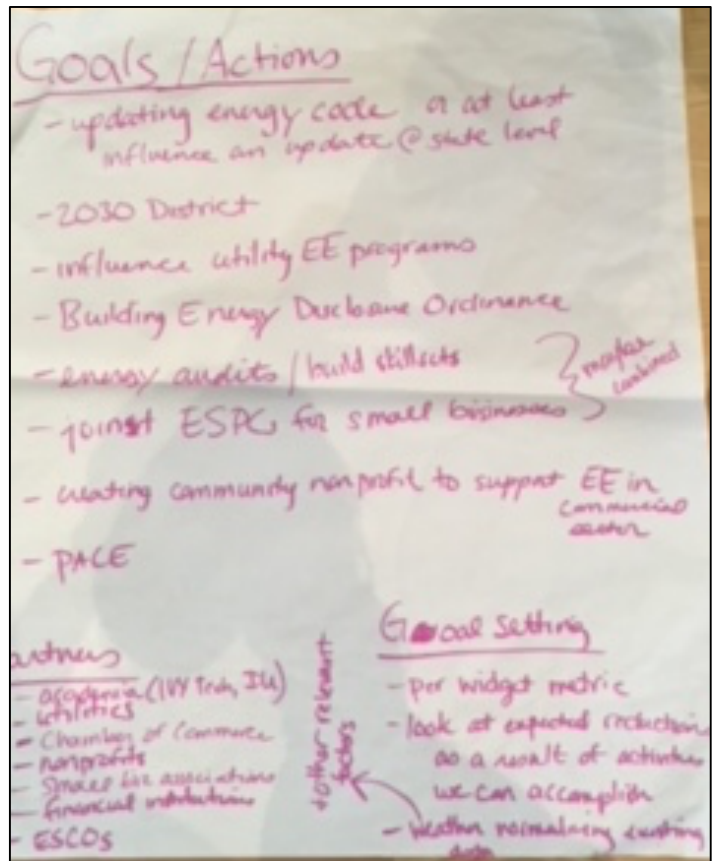 Goals / Actions
- updating energy code or at least
influence an update @ state level
- 2030 District
- influence utility EE programs
- Building Energy Disclosure Ordinance
- energy audits / build skillsets
- joint ESPC for small businesses
maybe
combined
- creating community nonprofit to support EE in
commercial
sector
- PACE
artners
- academia (IVY Tech, IU)
- utilities
- Chamber of Commerce
- nonprofits
- small biz associations
- financial institutions
- ESCOs
+ other relevant
factors
Goal Setting
- per widget metric
- look at expected reductions
as a result of activities
we can accomplish
- Weather normalizing existing
data